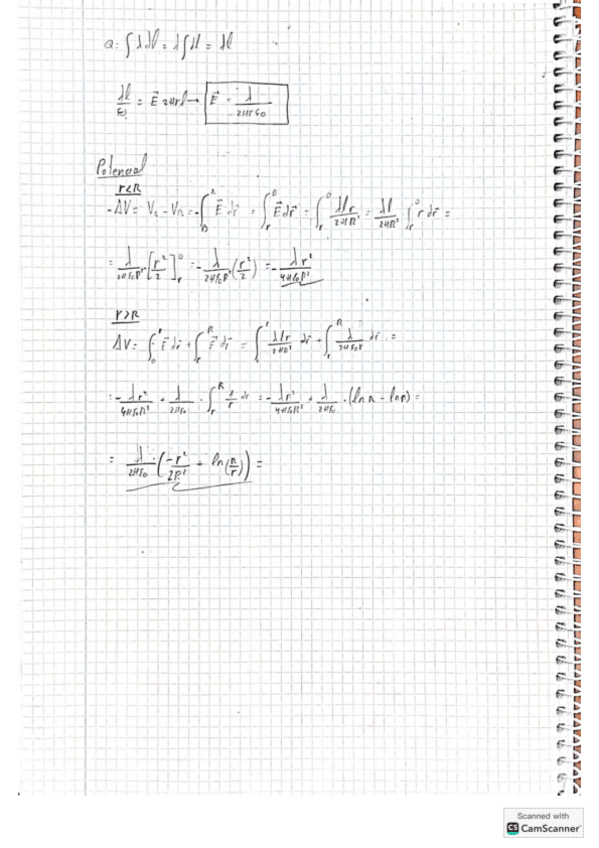 Q = ∫ λ dl = λ ∫ dl = λl
λl/ε₀ = E⃗ 2πrl → E⃗ = λ/2πrε₀
Potencial
r<R
-ΔV = V₀ - V_R = - E⃗ dr⃗ = ∫ᵣ⁰ E⃗ dr⃗ = ∫ᵣ⁰ λlr/2πR² = λl/2πR² ∫ᵣ⁰ r dr⃗ =
= λ/2πε₀R² [r²/2]ᵣ⁰ = - λ/2πε₀R² (r²/2) = - λr²/4πε₀R²
r>R
ΔV = ∫₀ʳ E⃗ dr⃗ + ∫ᵣᴿ E⃗ dr⃗ = ∫ λlr/2πR² dr⃗ + ∫ᵣᴿ λ/2πε₀r dr⃗ =
= - λr²/4πε₀R² + λ/2πε₀ · ∫ᵣᴿ 1/r dr = - λr²/4πε₀R² + λ/2πε₀ · (ln R - ln r) =
= λ/2πε₀ · (-r²/2R² + ln(R/r)) =
Scanned with
CS CamScanner